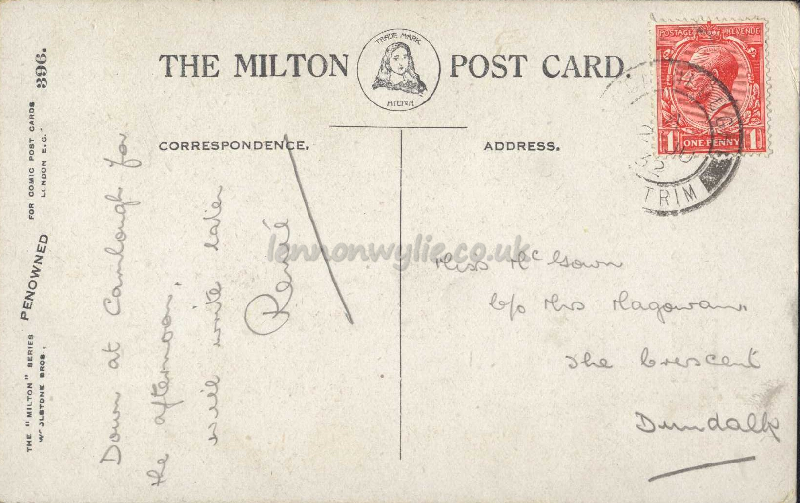 THE MILTON POST CARD.
TRADE MARK
MILTON
CORRESPONDENCE.
ADDRESS.
POSTAGE REVENUE
1 ONE PENNY 1
TRIM
32
THE "MILTON" SERIES PENOWNED FOR COMIC POST CARDS 396.
WOOLSTONE BROS. LONDON E.C.
Down at Carnlough for
the afternoon.
will write later
Renié
Miss McGown
c/o Mrs Magowan
The Crescent
Dundalk
lennonwylie.co.uk